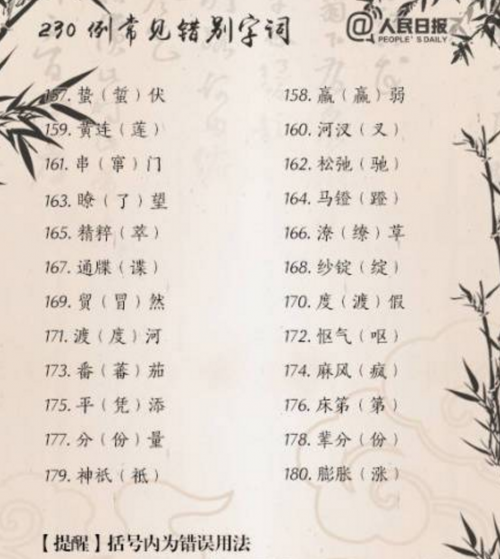 230例常见错别字词
@人民日报
PEOPLE'S DAILY
157. 蛰（蜇）伏 158. 羸（赢）弱
159. 黄连（莲） 160. 河汊（叉）
161. 串（窜）门 162. 松弛（驰）
163. 瞭（了）望 164. 马镫（蹬）
165. 精粹（萃） 166. 潦（缭）草
167. 通牒（谍） 168. 纱锭（绽）
169. 贸（冒）然 170. 度（渡）假
171. 渡（度）河 172. 怄气（呕）
173. 番（蕃）茄 174. 麻风（疯）
175. 平（凭）添 176. 床笫（第）
177. 分（份）量 178. 辈分（份）
179. 神祇（祗） 180. 膨胀（涨）
【提醒】括号内为错误用法